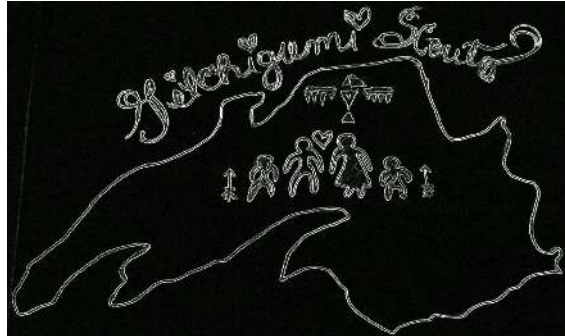 Gitchigumi Scouts